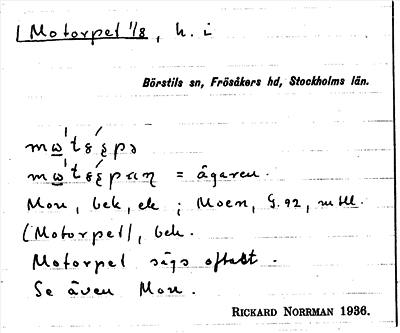 Motorpel 1/8, h. i
Börstils sn, Frösåkers hd, Stockholms län.
= ägaren.
Mon, bek, ek ; Moen, G. 92, m tll.
(Motorpel), bek.
Motorpel sägs oftast.
Se även Mon.
RICKARD NORRMAN 1936.